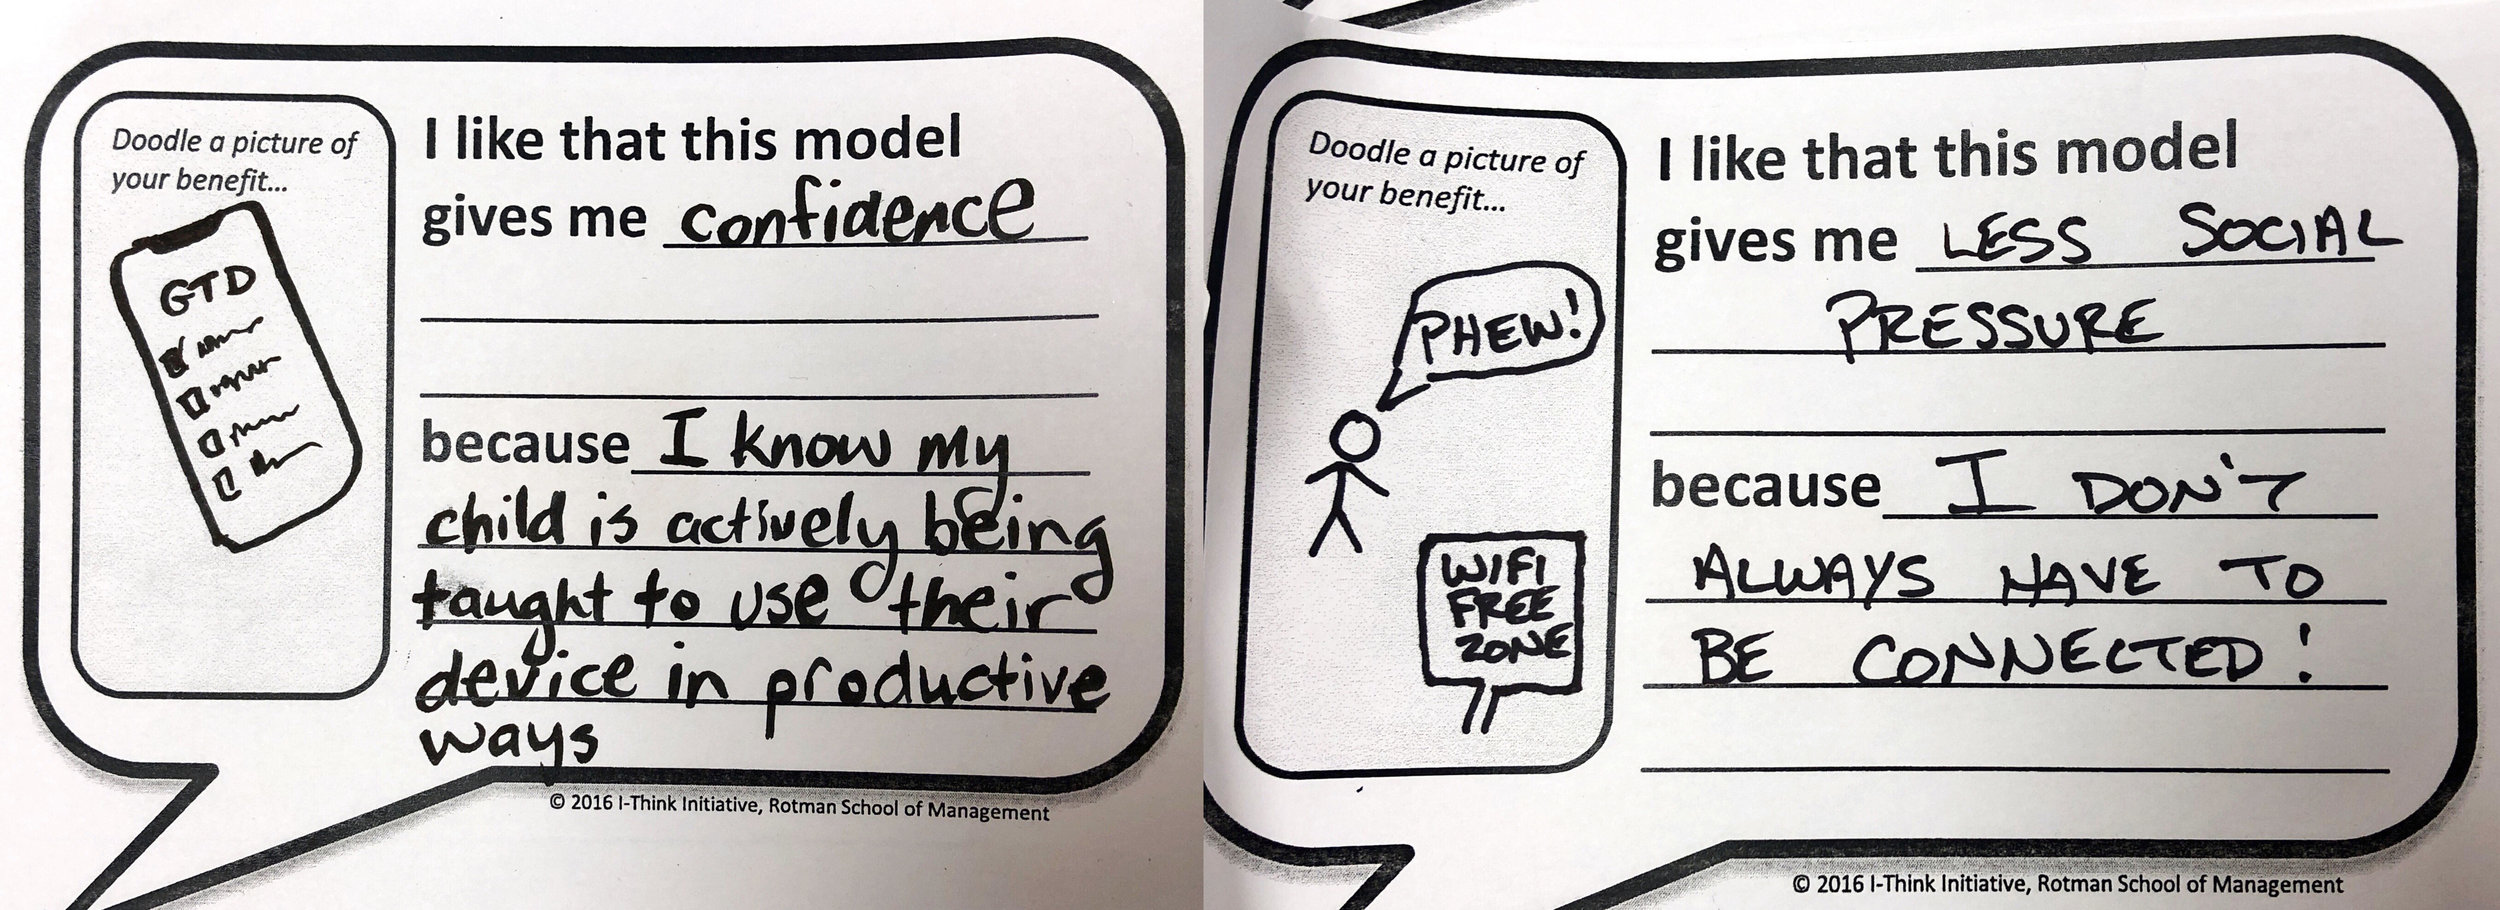 Doodle a picture of
your benefit...
GTD
I like that this model
gives me confidence
because I know my
child is actively being
taught to use their
device in productive
ways
© 2016 I-Think Initiative, Rotman School of Management
Doodle a picture of
your benefit...
PHEW!
WIFI
FREE
ZONE
I like that this model
gives me LESS SOCIAL
PRESSURE
because I DON'T
ALWAYS HAVE TO
BE CONNECTED!
© 2016 I-Think Initiative, Rotman School of Management